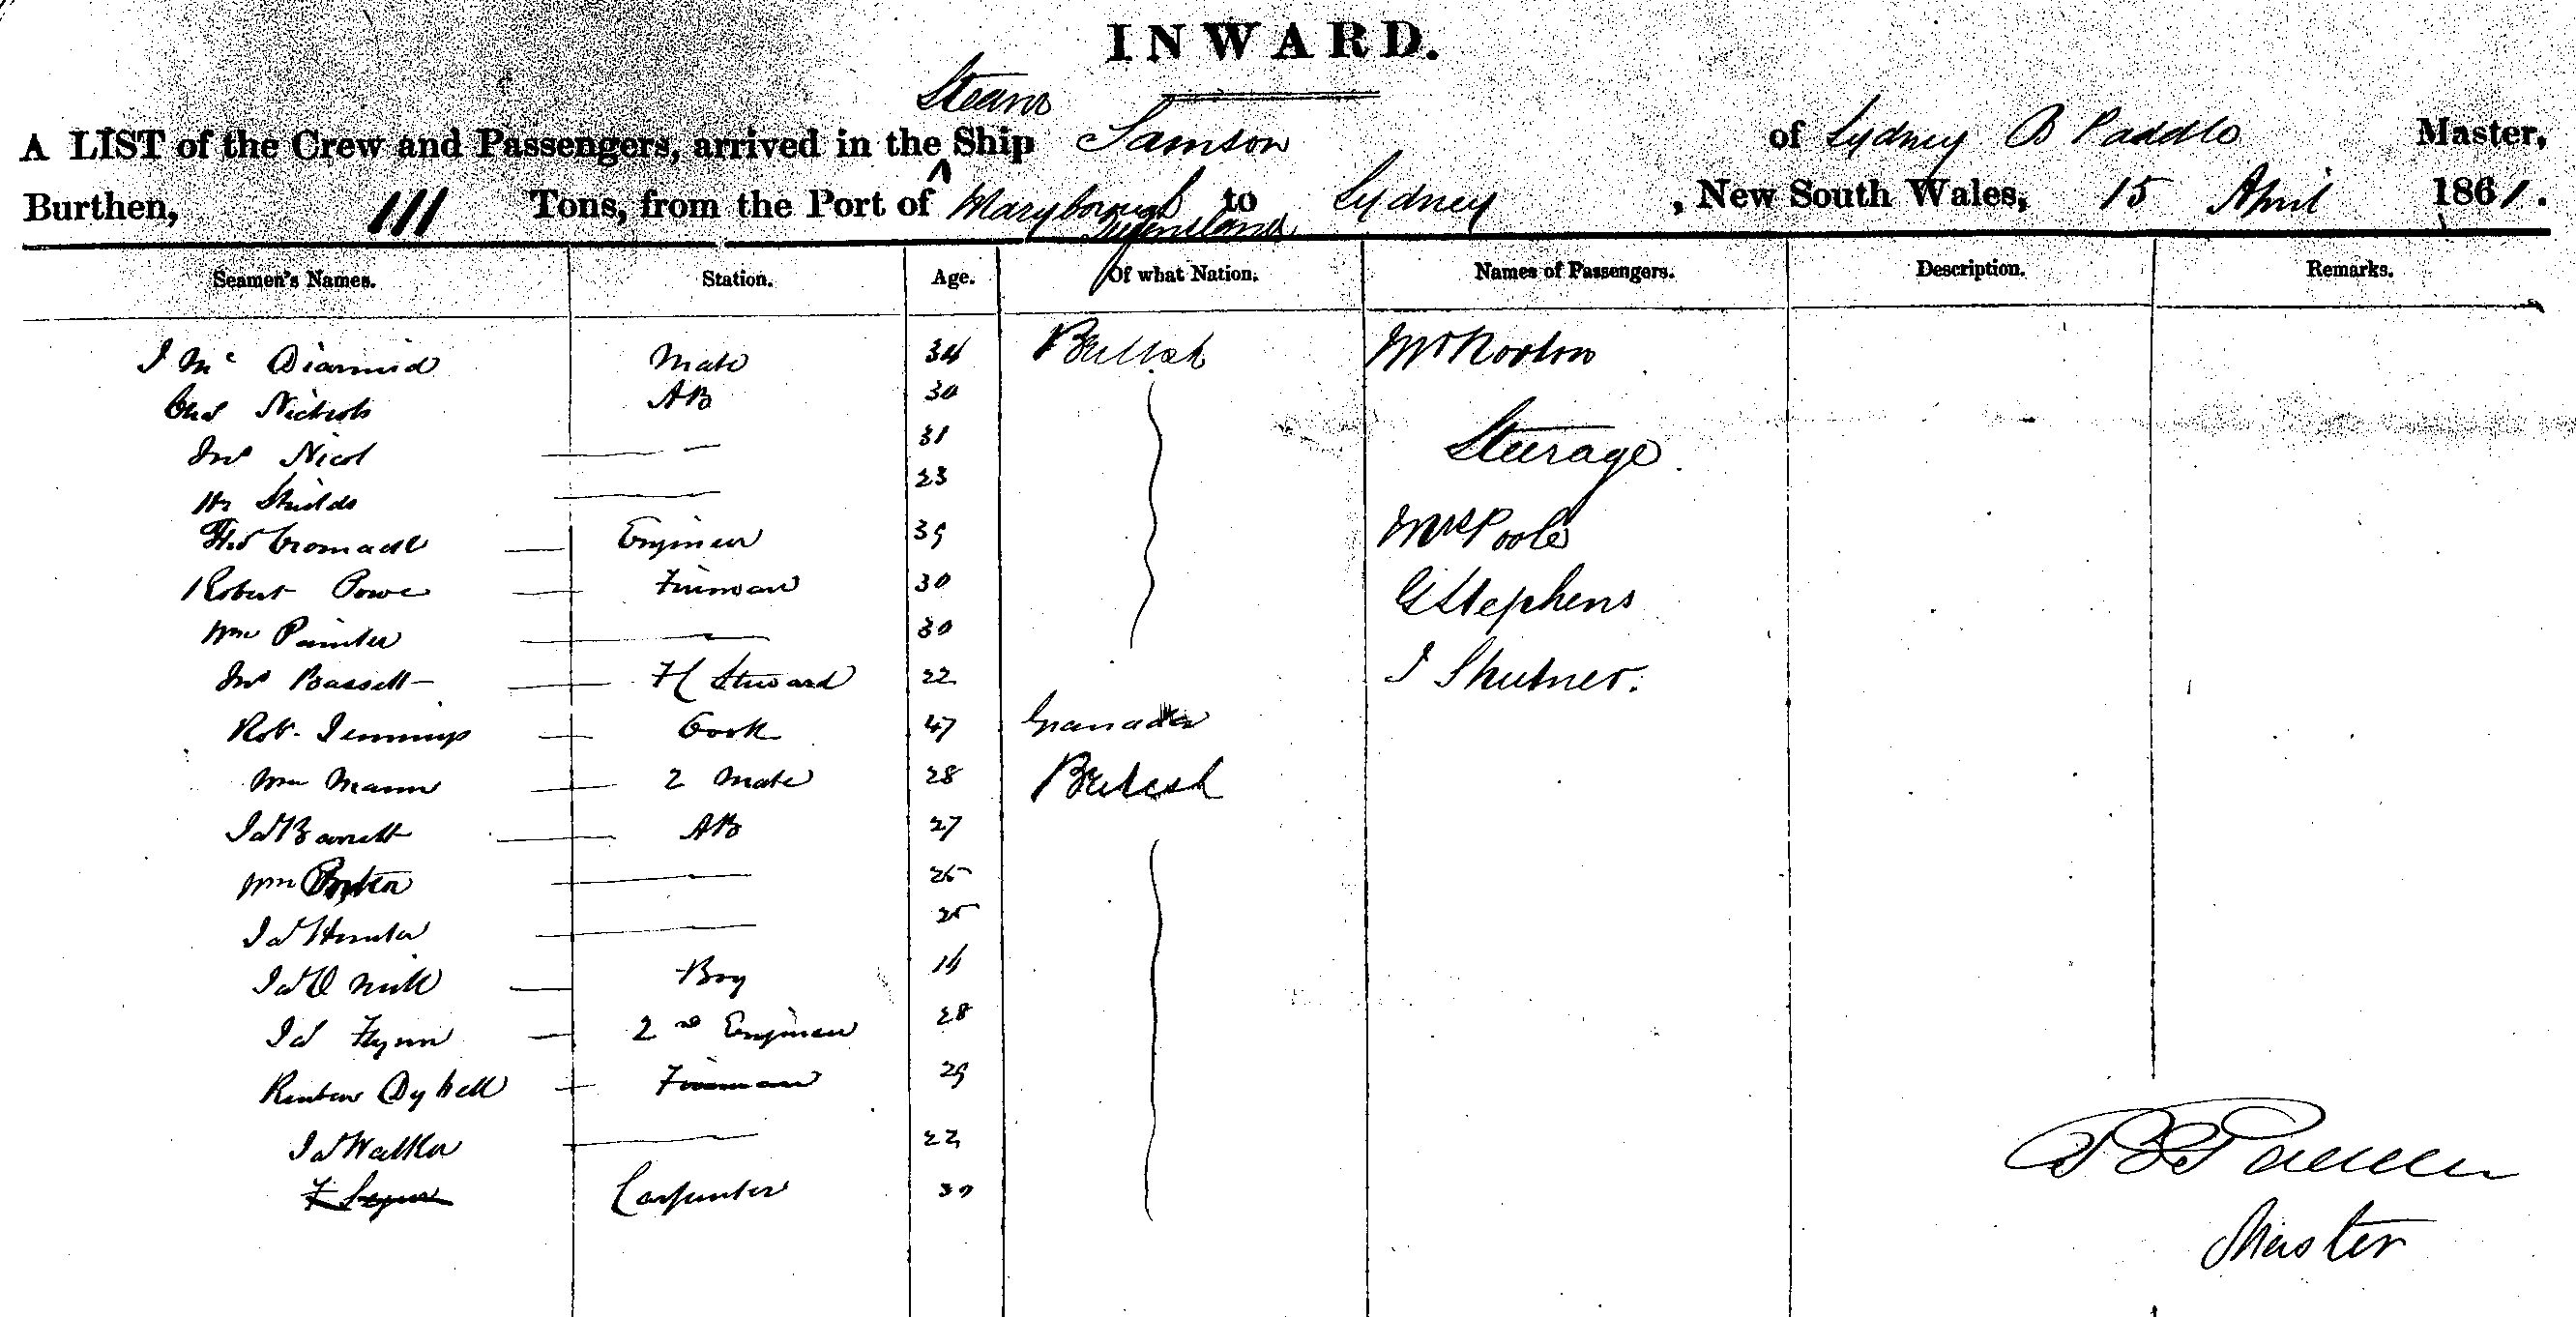 INWARD.
Steam
A LIST of the Crew and Passengers, arrived in the ^ Ship Samson of Sydney B Paddle Master,
Burthen, 111 Tons, from the Port of Maryborough to Sydney, New South Wales, 15 April 1861.
Queensland
Seamen's Names. Station. Age. Of what Nation. Names of Passengers. Description. Remarks.
J Mc Diarmid Mate 34 British Mr
Chs Nichols AB 30
Jno Nicol — 31 Steerage
Hy Shields — 23
Thos — Engineer 39 Mrs Poole
Robert Powe — Fireman 30 G Stephens
Wm Painter — 30
Jno Bassett — Steward 22 J Shutner.
Robt. Jennings — Cook 47 Granada
Wm Mann — 2 Mate 28 British
Jas Barrett — AB 27
Wm — 25
Jas Hunter — 25
Jas O Neill — Boy
Jas Flynn — 2nd Engineer 28
Dybell — Fireman 29
Jas Walker — 22
Carpenter 30
Master